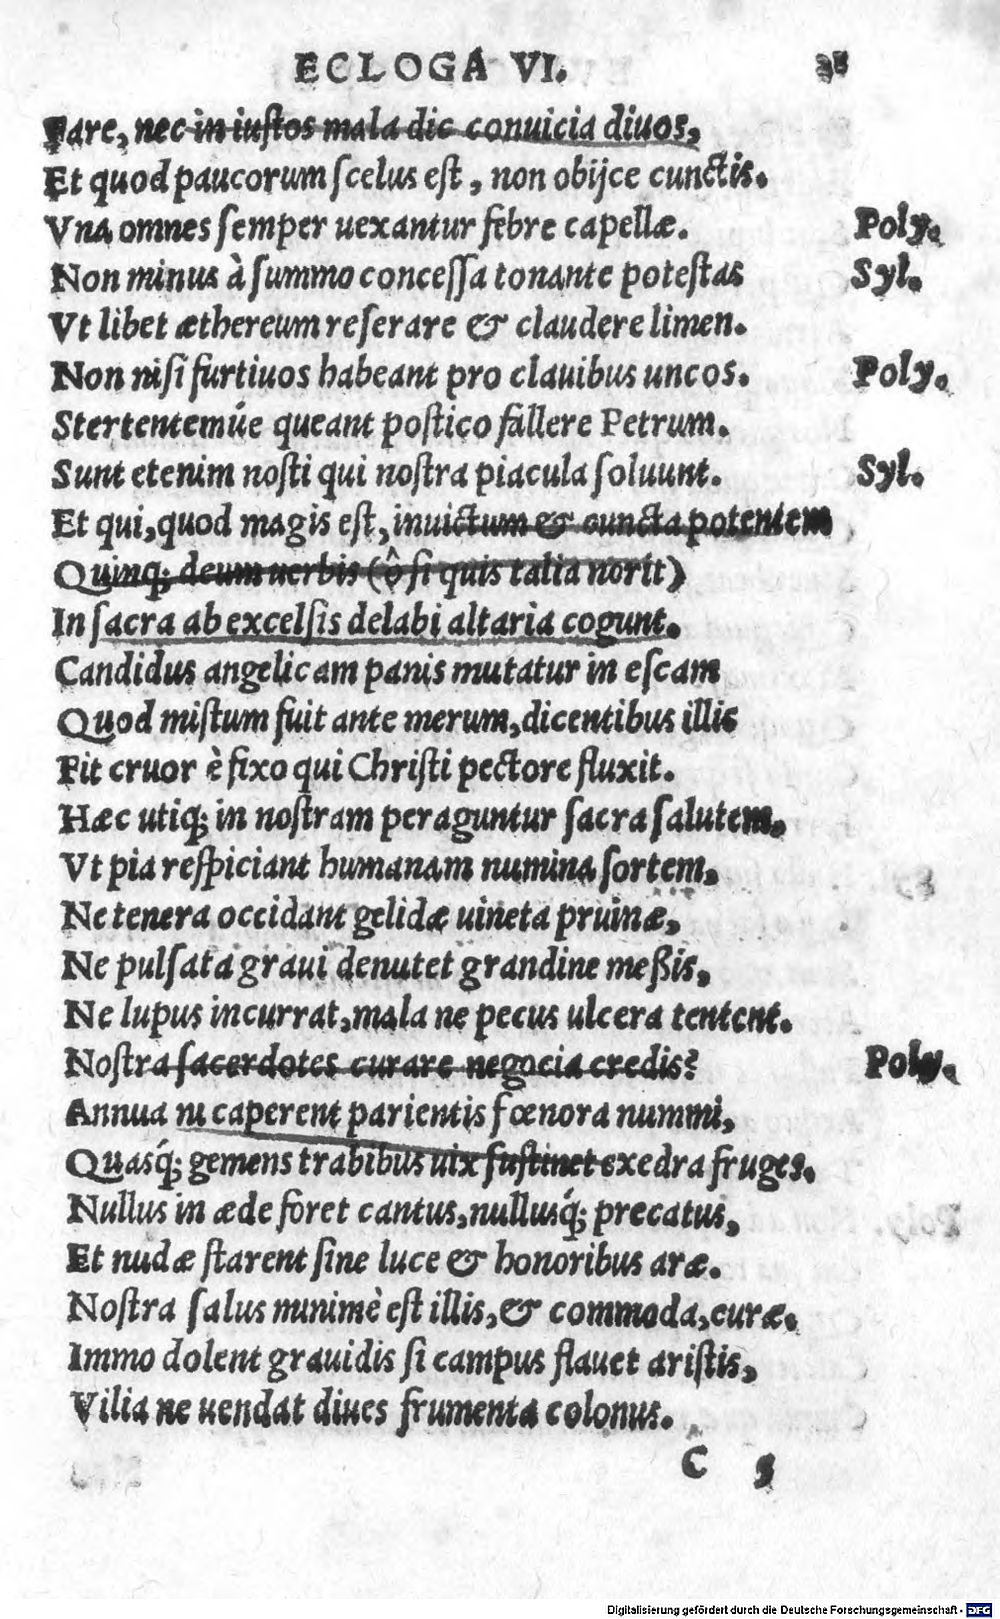 ECLOGA VI.
Pare, nec in iustos mala dic conuicia diuos,
Et quod paucorum scelus est, non obijce cunctis.
Vna omnes semper uexantur febre capellæ. Poly.
Non minus à summo concessa tonante potestas Syl.
Vt libet æthereum reserare & claudere limen.
Non nisi furtiuos habeant pro clauibus uncos. Poly.
Stertentemúe queant postico fallere Petrum.
Sunt etenim nosti qui nostra piacula soluunt. Syl.
Et qui, quod magis est, inuictum & cuncta potentem
Quinq; deum uerbis (ô si quis talia norit)
In sacra ab excelsis delabi altaria cogunt.
Candidus angelicam panis mutatur in escam
Quod mistum fuit ante merum, dicentibus illis
Fit cruor è fixo qui Christi pectore fluxit.
Hæc utiq; in nostram peraguntur sacra salutem,
Vt pia respiciant humanam numina sortem,
Ne tenera occidant gelidæ uineta pruinæ,
Ne pulsata graui denutet grandine meßis,
Ne lupus incurrat, mala ne pecus ulcera tentent.
Nostra sacerdotes curare negocia credis? Poly.
Annua ni caperent parientis fœnora nummi,
Quasq́; gemens trabibus uix sustinet exedra fruges.
Nullus in æde foret cantus, nullusq́; precatus,
Et nudæ starent sine luce & honoribus aræ.
Nostra salus minimè est illis, & commoda, curæ.
Immo dolent grauidis si campus flauet aristis,
Vilia ne uendat diues frumenta colonus.
C 5
Digitalisierung gefördert durch die Deutsche Forschungsgemeinschaft - DFG